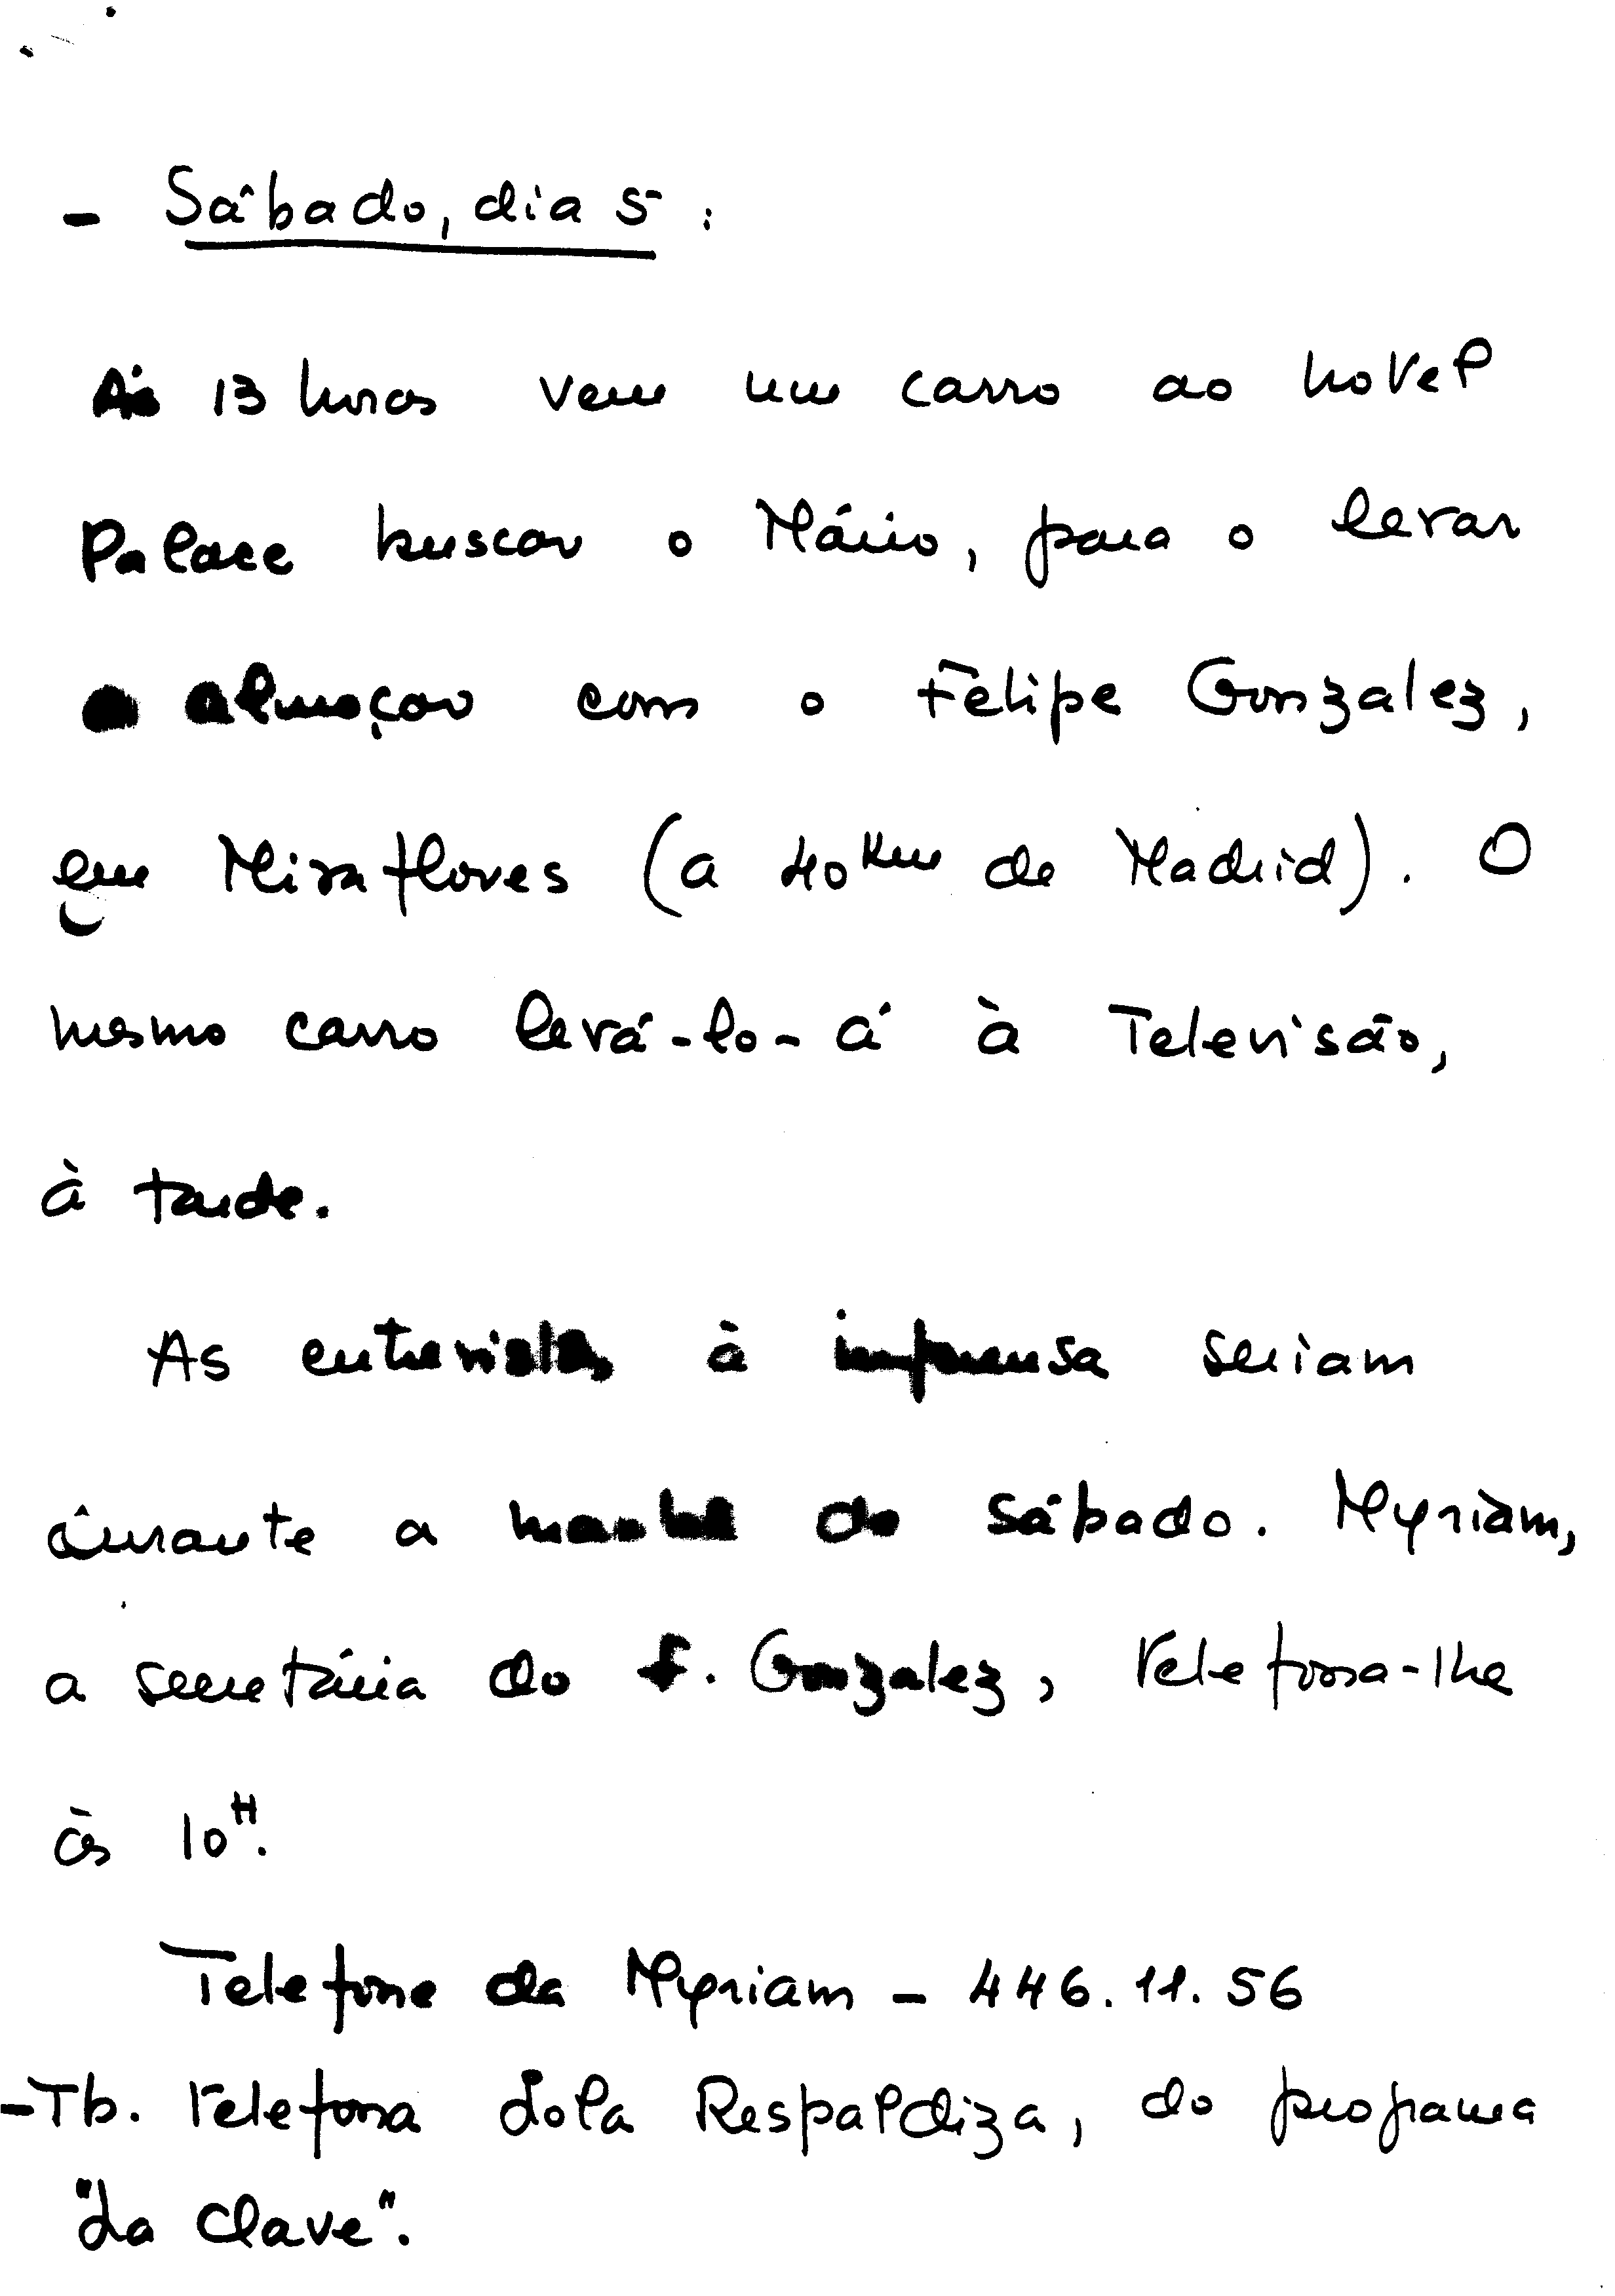 - Sábado, dia 5:
Às 13 horas vem um carro ao hotel
Palace buscar o Mário, para o levar
a almoçar com o Felipe Gonzalez,
em Miraflores (a 40 Km de Madrid). O
mesmo carro levá-lo-á à Televisão,
à tarde.
As entrevistas à imprensa seriam
durante a manhã do sábado. Myriam,
a secretária do F. Gonzalez, telefona-lhe
às 10H.
Telefone da Myriam - 446.11.56
- Tb. telefona Lola Respaldiza, do programa
"La Clave".